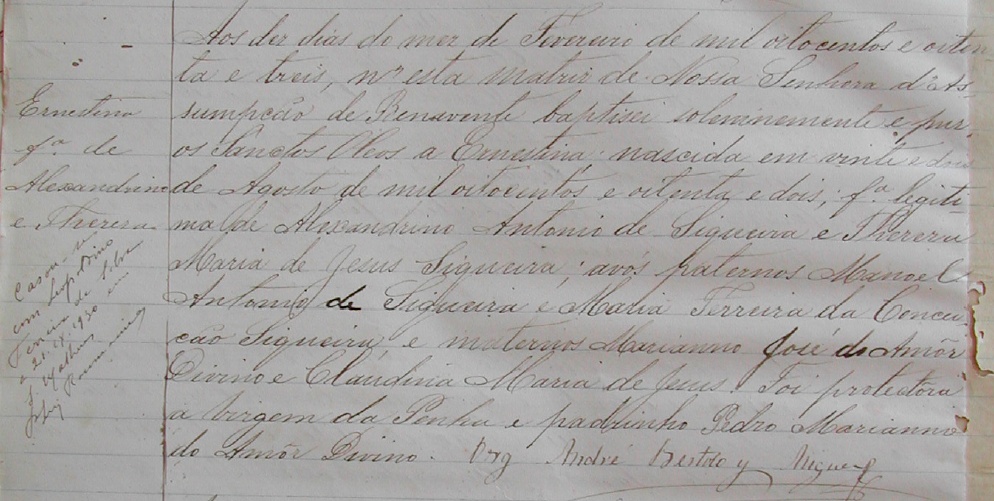 Aos dez dias do mez de Fevereiro de mil oitocentos e oiten
ta e treis, n'esta Matriz de Nossa Senhora d'As-
sumpcão de Benavente baptisei solemnemente e puz
os Sanctos Oleos a Ernestina nascida em vinte e dous
de Agosto de mil oitocentos e oitenta e dois, fª legiti
ma de Alexandrino Antonio de Siqueira e Thereza
Maria de Jesus Siqueira; avós paternos Manoel
Antonio de Siqueira e Maria Ferreira da Concei-
cão Siqueira e maternos Marianno José do Amôr
Divino e Claudina Maria de Jesus. Foi protectora
a Virgem da Penha e padrinho Pedro Marianno
do Amôr Divino. Vrg André
Ernestina
fª de
Alexandrino
e Thereza
Casou-se
com Leopoldino
da Silva
a 21. IX. 1930 em